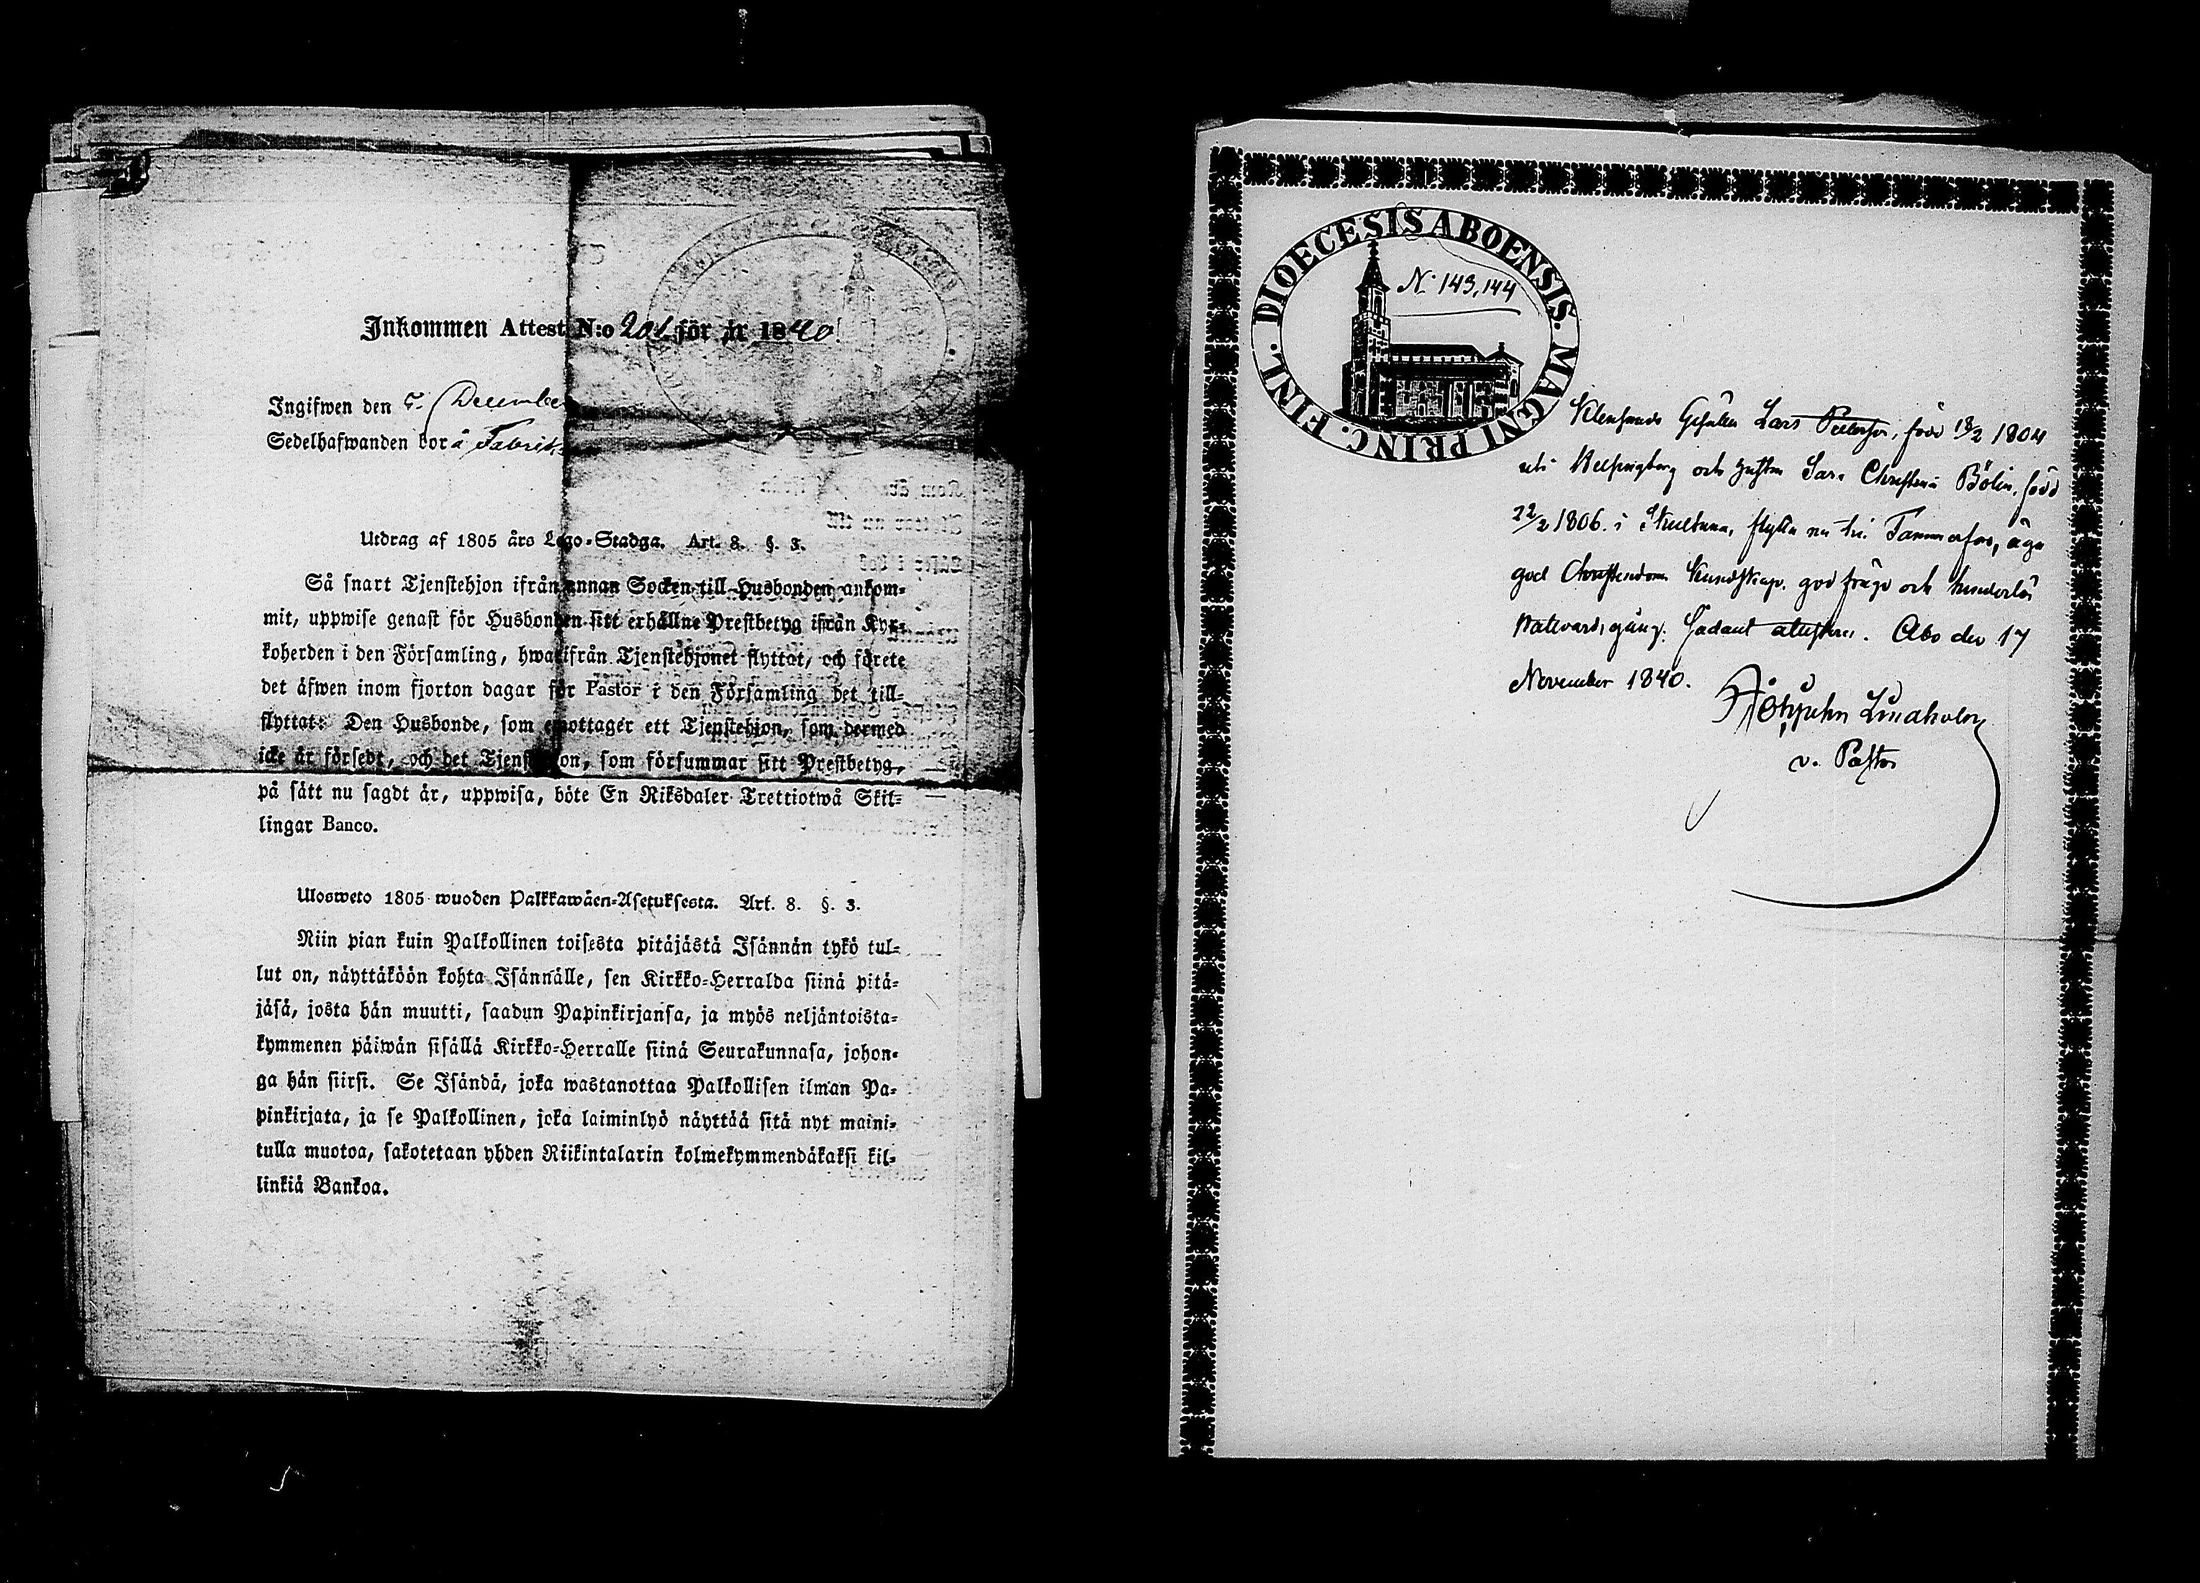 Inkommen Attest N:o 201 för år 1840.
Ingifwen den 5. December
Sedelhafwanden bor å Fabrik
Utdrag af 1805 års Lego-Stadga. Art. 8. §. 3.
Så snart Tjenstehjon ifrån annan Socken till Husbonden ankom-
mit, uppwise genast för Husbonden sitt erhållne Prestbetyg ifrån Kyr-
koherden i den Församling, hwarifrån Tjenstehjonet flyttat, och förete
det äfwen inom fjorton dagar för Pastor i den Församling det till-
flyttat: Den Husbonde, som emottager ett Tjenstehjon, som dermed
icke är försedt, och det Tjenstehjon, som försummar sitt Prestbetyg,
på sätt nu sagdt är, uppwisa, böte En Riksdaler Trettiotwå Skil-
lingar Banco.
Ulosweto 1805 wuoden Palkkawäen-Asetuksesta. Art. 8. §. 3.
Niin pian kuin Palkollinen toisesta pitäjästä Isännän tykö tul-
lut on, näyttäköön kohta Isännälle, sen Kirkko-Herralda siinä pitä-
jäsä, josta hän muutti, saadun Papinkirjansa, ja myös neljäntoista-
kymmenen päiwän sisällä Kirkko-Herralle siinä Seurakunnasa, johon-
ga hän siirsi. Se Isändä, joka wastanottaa Palkollisen ilman Pa-
pinkirjata, ja se Palkollinen, joka laiminlyö näyttää sitä nyt maini-
tulla muotoa, sakotetaan yhden Riikintalarin kolmekymmendäkaksi kil-
linkiä Bankoa.
DIOECESIS ABOENSIS. MAGNI PRINC. FINL.
N. 143, 144
Gesällen Lars född 18/2 1804
uti Helsingborg och hustrun Sara Christina Bölin, född
22/2 1806. i flytta nu till Tammerfors, äga
god Christendoms Kundskap, god frägd och hinderlös
Nattvardsgång. Sådant attesteras. Åbo den 17
November 1840.
Lindholm
v. Pastor